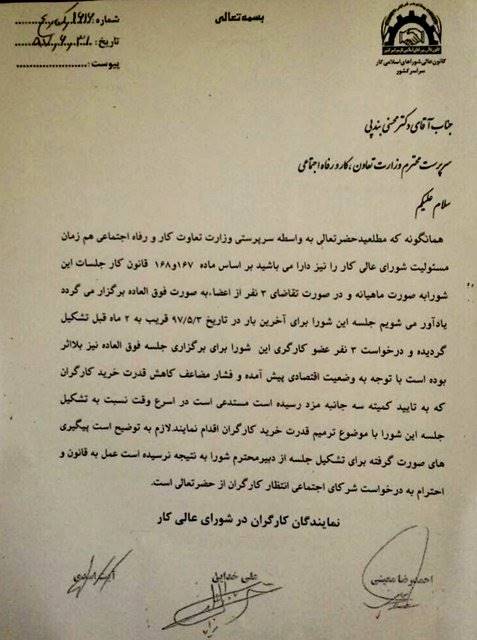 بسمه‌تعالی
شماره:
تاریخ:
پیوست:
کانون عالی شوراهای اسلامی کار
سراسر کشور
جناب آقای دکتر محسنی بندپی
سرپرست محترم وزارت تعاون، کار و رفاه اجتماعی
سلام علیکم
همانگونه که مطلعیدحضرتعالی به واسطه سرپرستی وزارت تعاوت کار و رفاه اجتماعی هم زمان
مسئولیت شورای عالی کار را نیز دارا می باشید بر اساس ماده ۱۶۷و۱۶۸ قانون کار جلسات این
شورابه صورت ماهیانه و در صورت تقاضای ۳ نفر از اعضاءبه صورت فوق العاده برگزار می گردد
یادآور می شویم جلسه این شورا برای آخرین بار در تاریخ ۹۷/۵/۳ قریب به ۲ ماه قبل تشکیل
گردیده و درخواست ۳ نفر عضو کارگری این شورا برای برگزاری جلسه فوق العاده نیز بلااثر
بوده است با توجه به وضعیت اقتصادی پیش آمده و فشار مضاعف کاهش قدرت خرید کارگران
که به تایید کمیته سه جانبه مزد رسیده است مستدعی است در اسرع وقت نسبت به تشکیل
جلسه این شورا با موضوع ترمیم قدرت خرید کارگران اقدام نمایند.لازم به توضیح است پیگیری
های صورت گرفته برای تشکیل جلسه از دبیرمحترم شورا به نتیجه نرسیده است عمل به قانون و
احترام به درخواست شرکای اجتماعی انتظار کارگران از حضرتعالی است.
نمایندگان کارگران در شورای عالی کار
احمدرضا معینی
علی خدایی